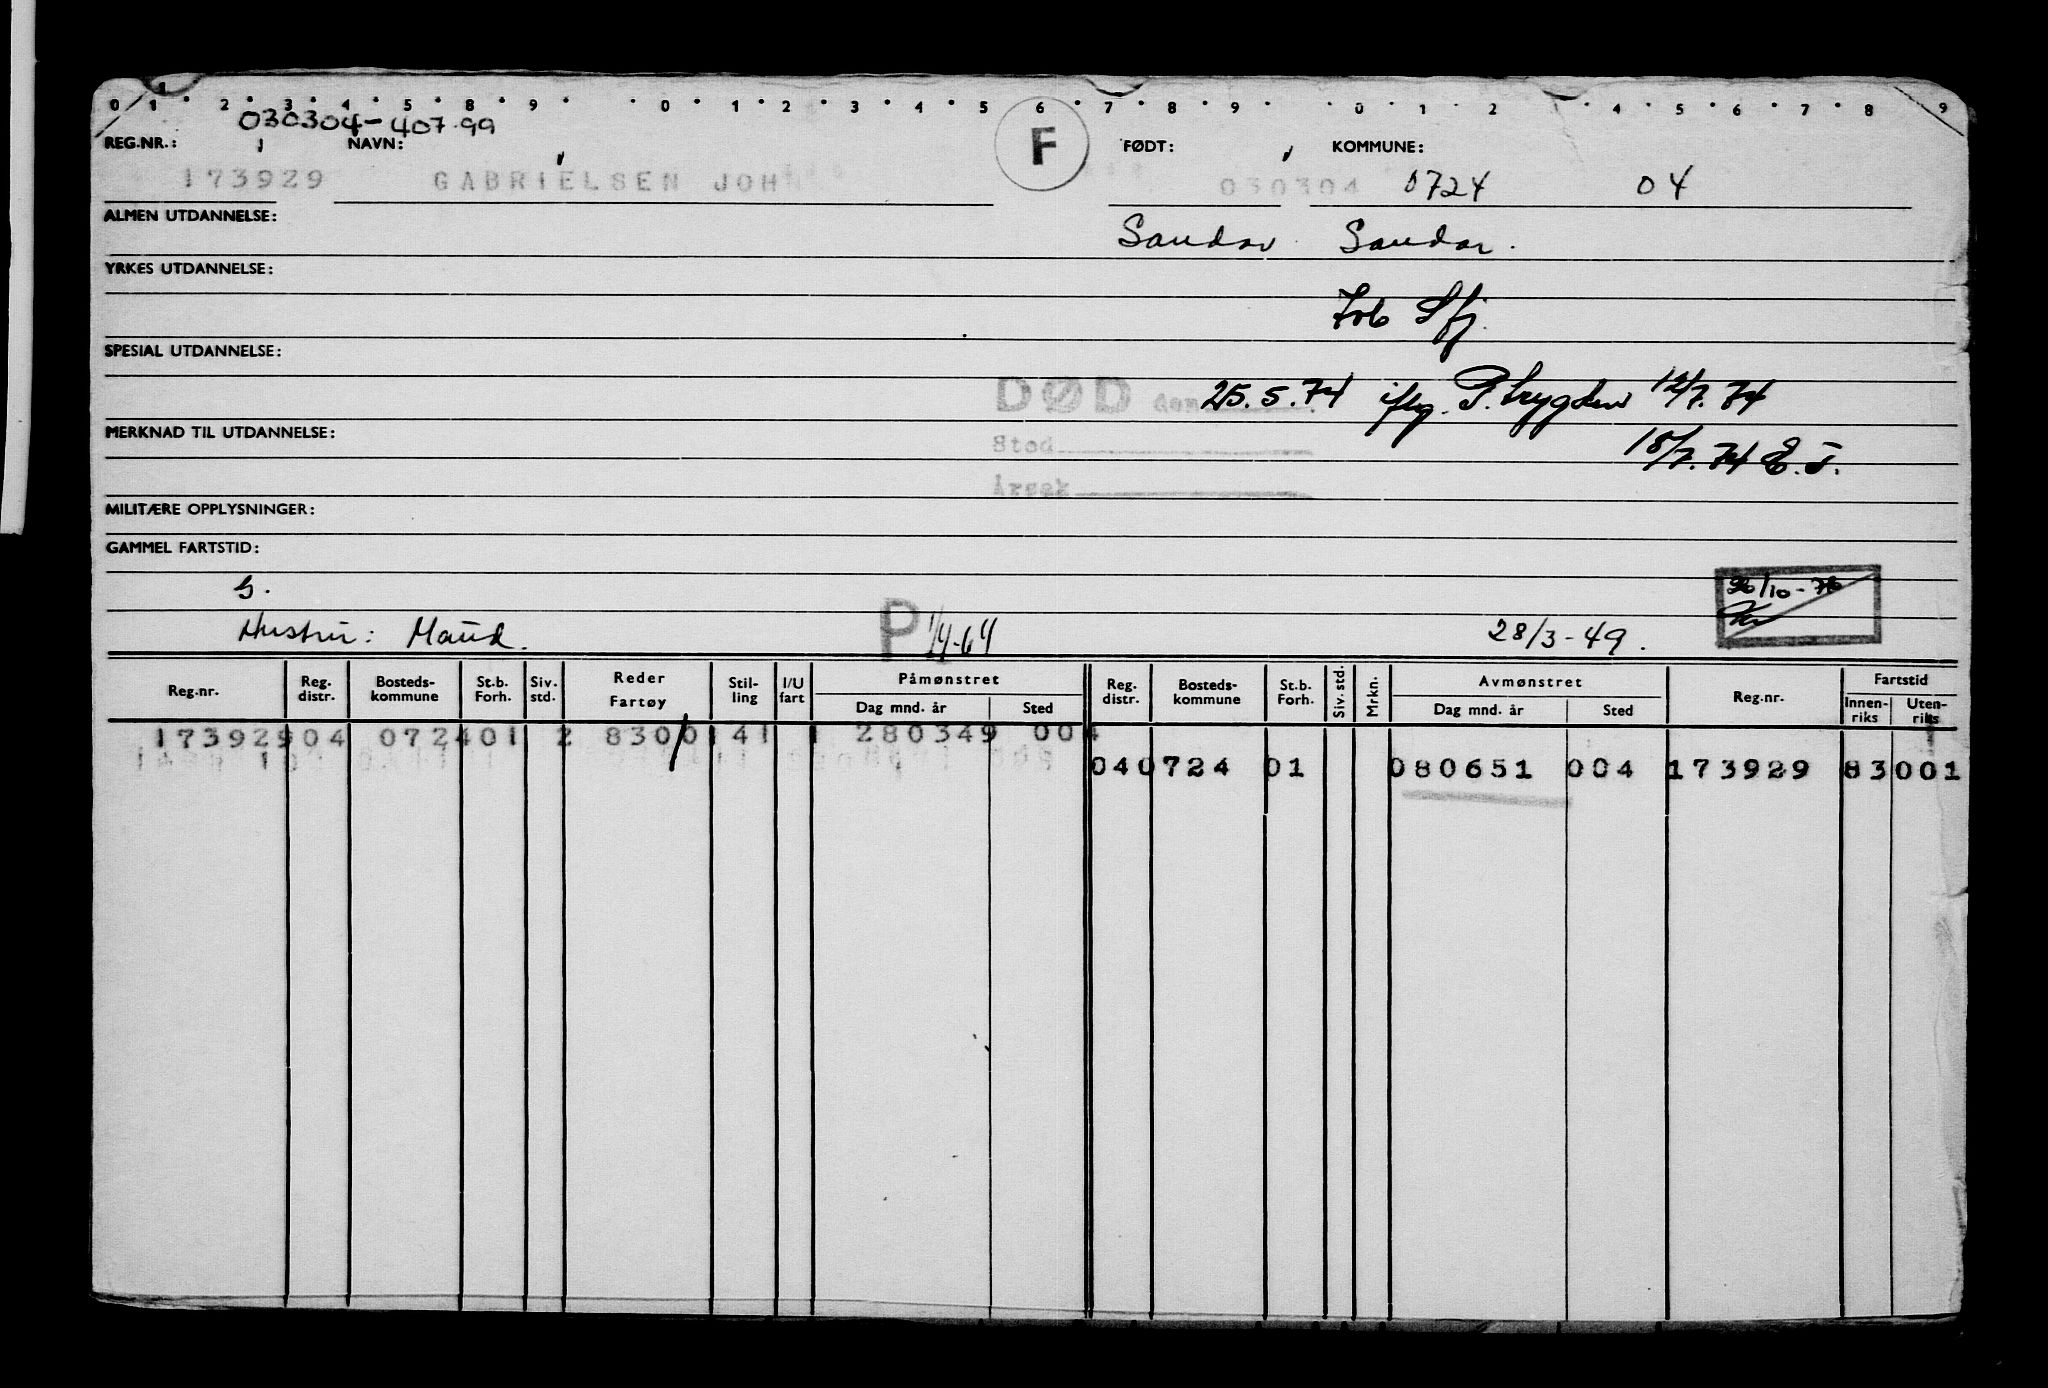 0 1 2 3 4 5 8 9 0 1 2 3 4 5 6 7 8 9 0 1 2 4 5 6 7 8 9
030304-407.99
REG.NR.: NAVN: F FØDT: KOMMUNE:
173929 GABRIELSEN JOH 030304 0724 04
ALMEN UTDANNELSE: Sandar Sandar.
YRKES UTDANNELSE:
Sfj.
SPESIAL UTDANNELSE:
DØD den 25.5.74 iflg. P.trygden 12/7.74
MERKNAD TIL UTDANNELSE:
Sted 18/7.74 E.T.
Årsak
MILITÆRE OPPLYSNINGER:
GAMMEL FARTSTID:
G. 26/10-76
Hustru: Maud. P 1/4-64 28/3-49.
Reg.nr. Reg. distr. Bosteds-kommune St.b. Forh. Siv. std. Reder Fartøy Stil-ling I/U fart Påmønstret Dag mnd. år Sted Reg. distr. Bosteds-kommune St.b. Forh. Siv. std. Mrkn. Avmønstret Dag mnd. år Sted Reg.nr. Fartstid Innen-riks Uten-riks
173929 04 0724 01 2 8300 141 1 280349 004
04 0724 01 080651 004 173929 83001